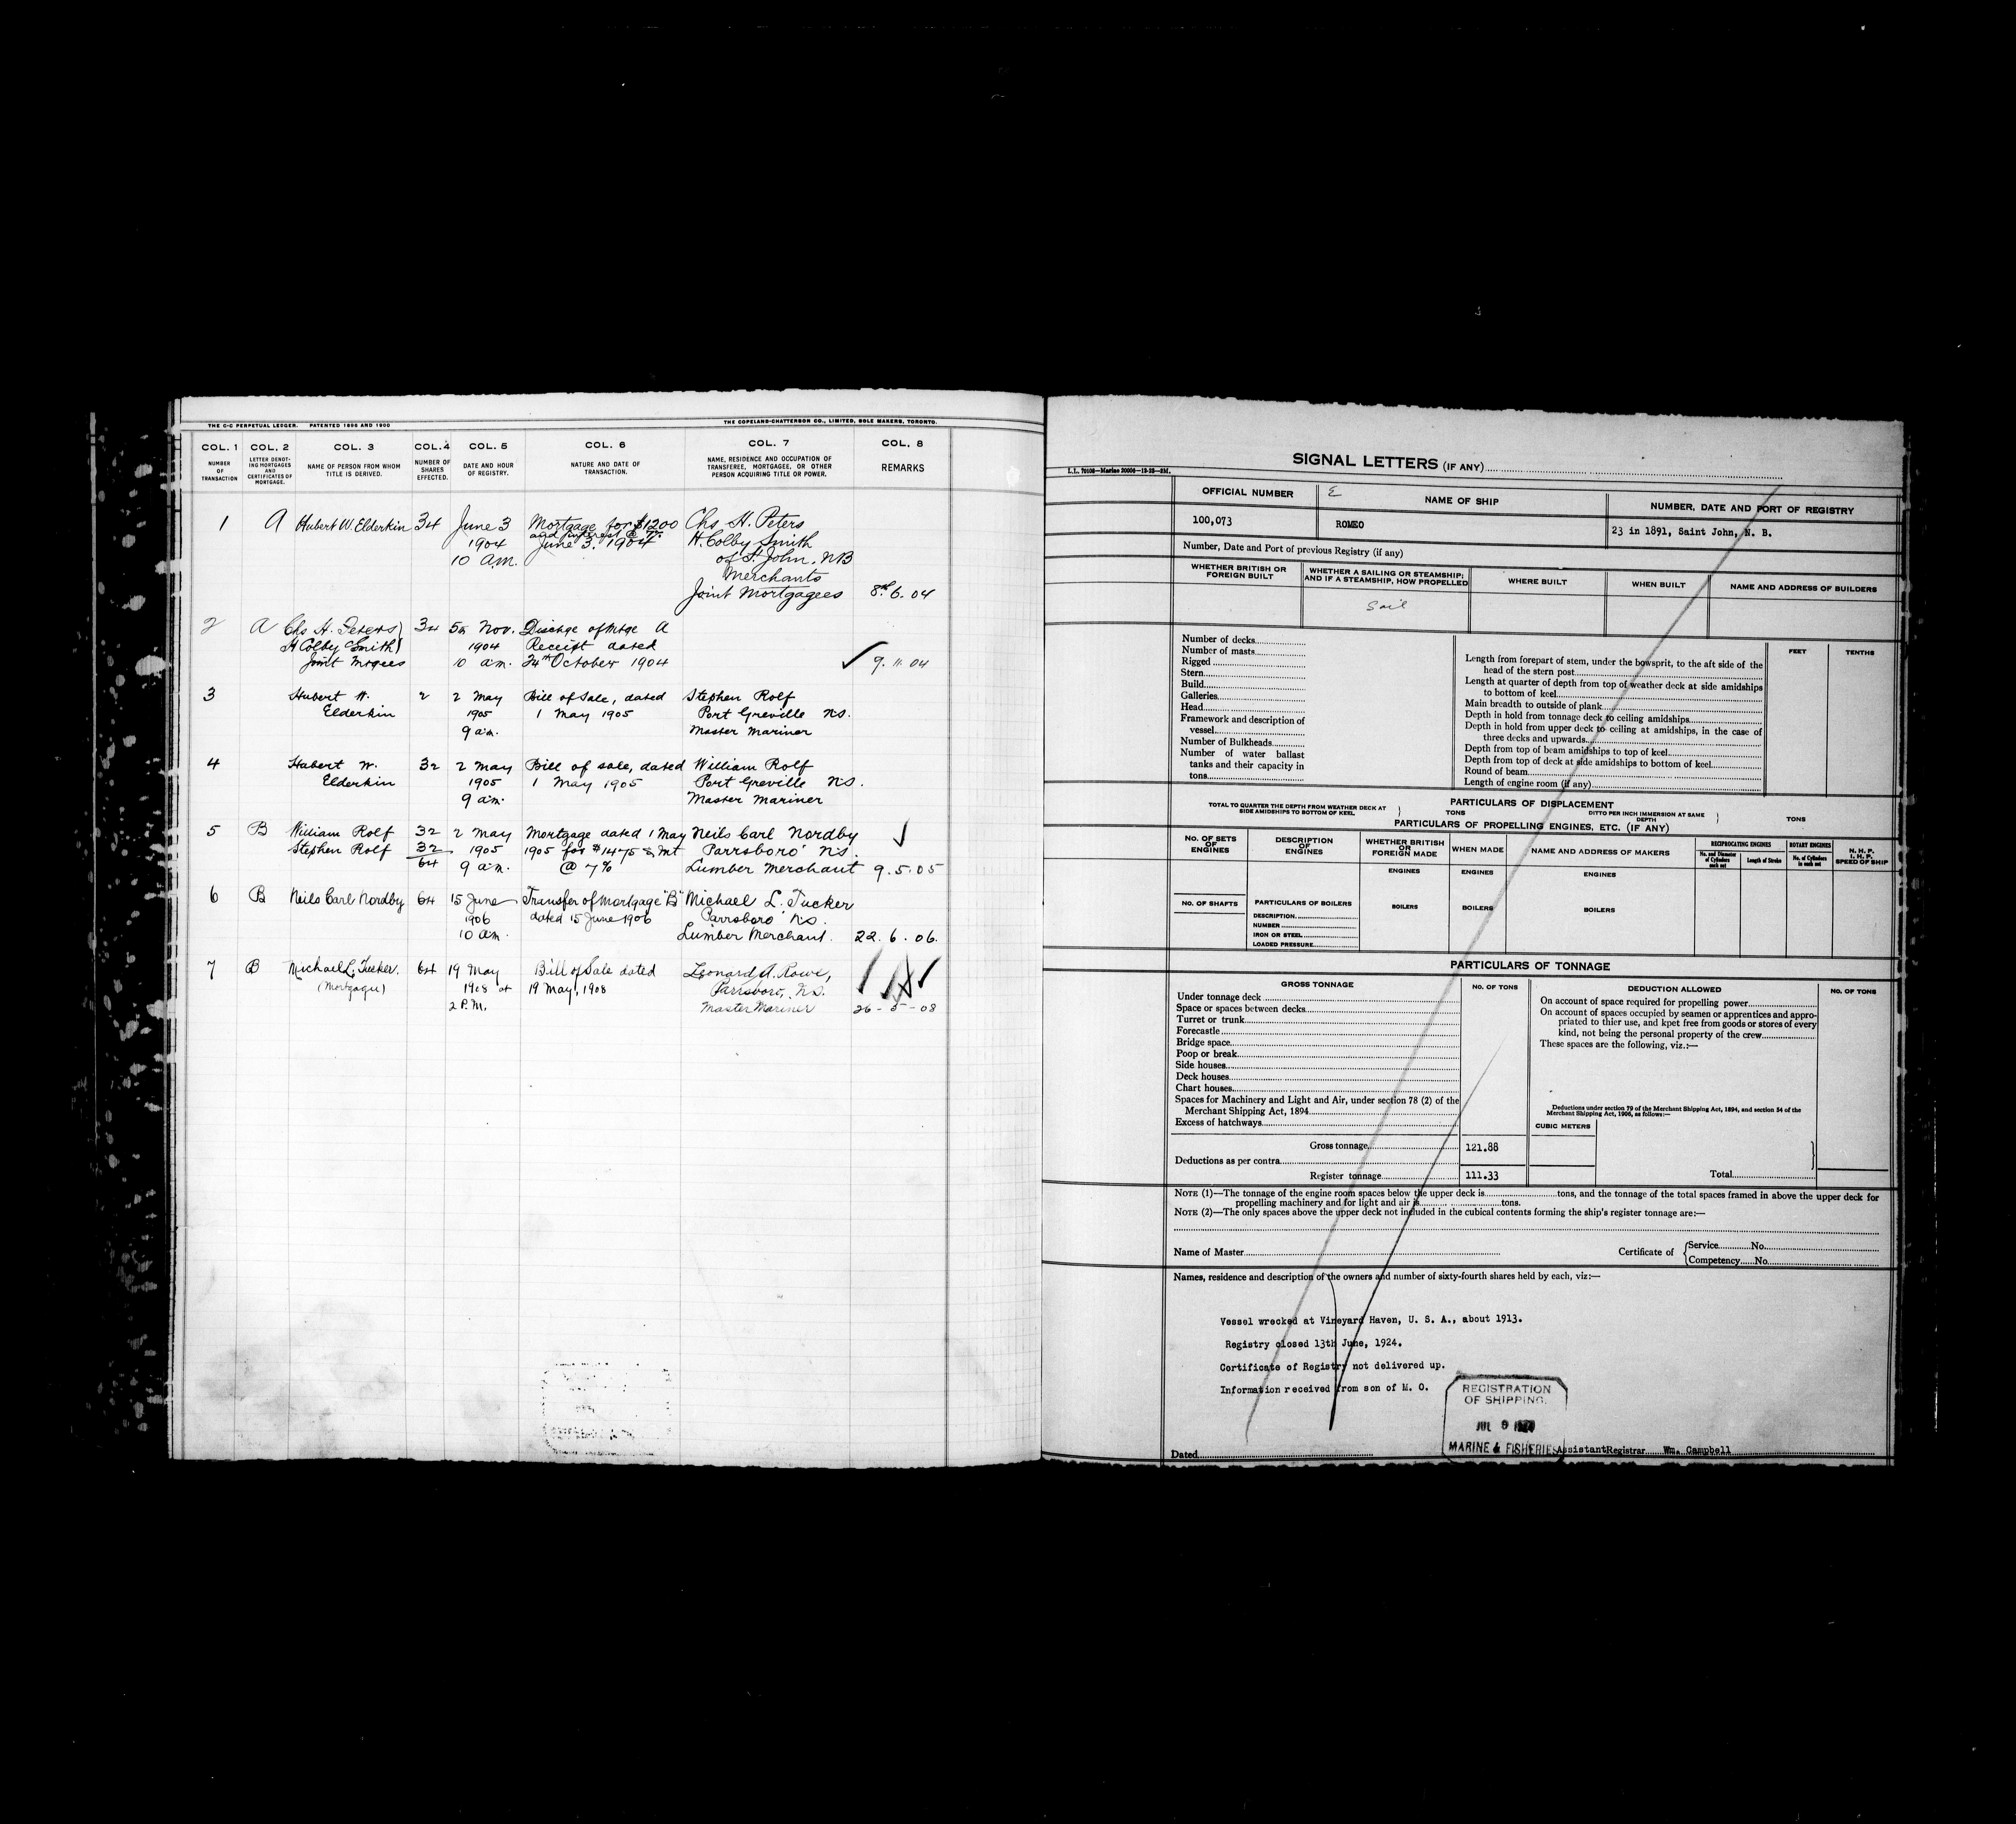 THE C-C PERPETUAL LEDGER. PATENTED 1896 AND 1900
THE COPELAND-CHATTERSON CO., LIMITED, SOLE MAKERS, TORONTO.
COL. 1 COL. 2 COL. 3 COL. 4 COL. 5 COL. 6 COL. 7 COL. 8
NUMBER OF TRANSACTION
LETTER DENOTING MORTGAGES AND CERTIFICATES OF MORTGAGE.
NAME OF PERSON FROM WHOM TITLE IS DERIVED.
NUMBER OF SHARES EFFECTED.
DATE AND HOUR OF REGISTRY.
NATURE AND DATE OF TRANSACTION.
NAME, RESIDENCE AND OCCUPATION OF TRANSFEREE, MORTGAGEE, OR OTHER PERSON ACQUIRING TITLE OR POWER.
REMARKS
1 A Hubert W. Elderkin 34 June 3 Mortgage for $1200 Chs H. Peters
and interest @ 7%
1904 June 3. 1904 H. Colby Smith
10 a.m. of St. John, NB
Merchants
Joint Mortgagees 8.6.04
2 A Chs H. Peters 34 5th Nov. Dischge of Mtge A
H Colby Smith 1904 Receipt dated
Joint Mtgees 10 am. 24th October 1904 9.11.04
3 Hubert W. 2 2 May Bill of Sale, dated Stephen Rolf
Elderkin 1905 1 May 1905 Port Greville N.S.
9 a.m. Master Mariner
4 Hubert W. 32 2 May Bill of sale, dated William Rolf
Elderkin 1905 1 May 1905 Port Greville N.S.
9 a.m. Master Mariner
5 B William Rolf 32 2 May Mortgage dated 1 May Neils Carl Nordby
Stephen Rolf 32 1905 1905 for $1475 & Int Parrsboro' N.S.
64 9 a.m. @ 7% Lumber Merchant 9.5.05
6 B Neils Carl Nordby 64 15 June Transfer of Mortgage "B" Michael L. Tucker
1906 dated 15 June 1906 Parrsboro' N.S.
10 am. Lumber Merchant. 22.6.06.
7 B Michael L. Tucker. 64 19 May Bill of Sale dated Leonard A. Rowe,
(Mortgagee) 1908 at 19 May, 1908 Parrsboro, N.S.
2 P.M. Master Mariner 26-5-08
SIGNAL LETTERS (IF ANY)
L.L. 70108—Marine 20006—12-23—2M.
OFFICIAL NUMBER E NAME OF SHIP NUMBER, DATE AND PORT OF REGISTRY
100,073 ROMEO 23 in 1891, Saint John, N. B.
Number, Date and Port of previous Registry (if any)
WHETHER BRITISH OR FOREIGN BUILT
WHETHER A SAILING OR STEAMSHIP; AND IF A STEAMSHIP, HOW PROPELLED
WHERE BUILT
WHEN BUILT
NAME AND ADDRESS OF BUILDERS
Sail
Number of decks
Number of masts
Rigged
Stern
Build
Galleries
Head
Framework and description of
vessel
Number of Bulkheads
Number of water ballast
tanks and their capacity in
tons
FEET TENTHS
Length from forepart of stem, under the bowsprit, to the aft side of the
head of the stern post
Length at quarter of depth from top of weather deck at side amidships
to bottom of keel
Main breadth to outside of plank
Depth in hold from tonnage deck to ceiling amidships
Depth in hold from upper deck to ceiling at amidships, in the case of
three decks and upwards
Depth from top of beam amidships to top of keel
Depth from top of deck at side amidships to bottom of keel
Round of beam
Length of engine room (if any)
PARTICULARS OF DISPLACEMENT
TOTAL TO QUARTER THE DEPTH FROM WEATHER DECK AT SIDE AMIDSHIPS TO BOTTOM OF KEEL } TONS
DITTO PER INCH IMMERSION AT SAME DEPTH } TONS
PARTICULARS OF PROPELLING ENGINES, ETC. (IF ANY)
NO. OF SETS OF ENGINES
DESCRIPTION OF ENGINES
WHETHER BRITISH OR FOREIGN MADE
WHEN MADE
NAME AND ADDRESS OF MAKERS
RECIPROCATING ENGINES
No. and Diameter of Cylinders each set
Length of Stroke
ROTARY ENGINES
No. of Cylinders in each set
N. H. P.
I. H. P.
SPEED OF SHIP
ENGINES ENGINES ENGINES
NO. OF SHAFTS PARTICULARS OF BOILERS BOILERS BOILERS BOILERS
DESCRIPTION
NUMBER
IRON OR STEEL
LOADED PRESSURE
PARTICULARS OF TONNAGE
GROSS TONNAGE NO. OF TONS DEDUCTION ALLOWED NO. OF TONS
Under tonnage deck
Space or spaces between decks
Turret or trunk
Forecastle
Bridge space
Poop or break
Side houses
Deck houses
Chart houses
Spaces for Machinery and Light and Air, under section 78 (2) of the
Merchant Shipping Act, 1894
Excess of hatchways
On account of space required for propelling power
On account of spaces occupied by seamen or apprentices and appro-
priated to thier use, and kpet free from goods or stores of every
kind, not being the personal property of the crew
These spaces are the following, viz.:—
Deductions under section 79 of the Merchant Shipping Act, 1894, and section 54 of the
Merchant Shipping Act, 1906, as follows:—
CUBIC METERS
Gross tonnage 121.88
Deductions as per contra
Register tonnage 111.33
Total
NOTE (1)—The tonnage of the engine room spaces below the upper deck is tons, and the tonnage of the total spaces framed in above the upper deck for
propelling machinery and for light and air is tons.
NOTE (2)—The only spaces above the upper deck not included in the cubical contents forming the ship's register tonnage are:—
Name of Master
Certificate of {Service No.
Competency No.
Names, residence and description of the owners and number of sixty-fourth shares held by each, viz:—
Vessel wrecked at Vineyard Haven, U. S. A., about 1913.
Registry closed 13th June, 1924.
Certificate of Registry not delivered up.
Information received from son of M. O.
REGISTRATION
OF SHIPPING.
JUL 9
MARINE & FISHERIES
Dated AssistantRegistrar Wm. Campbell